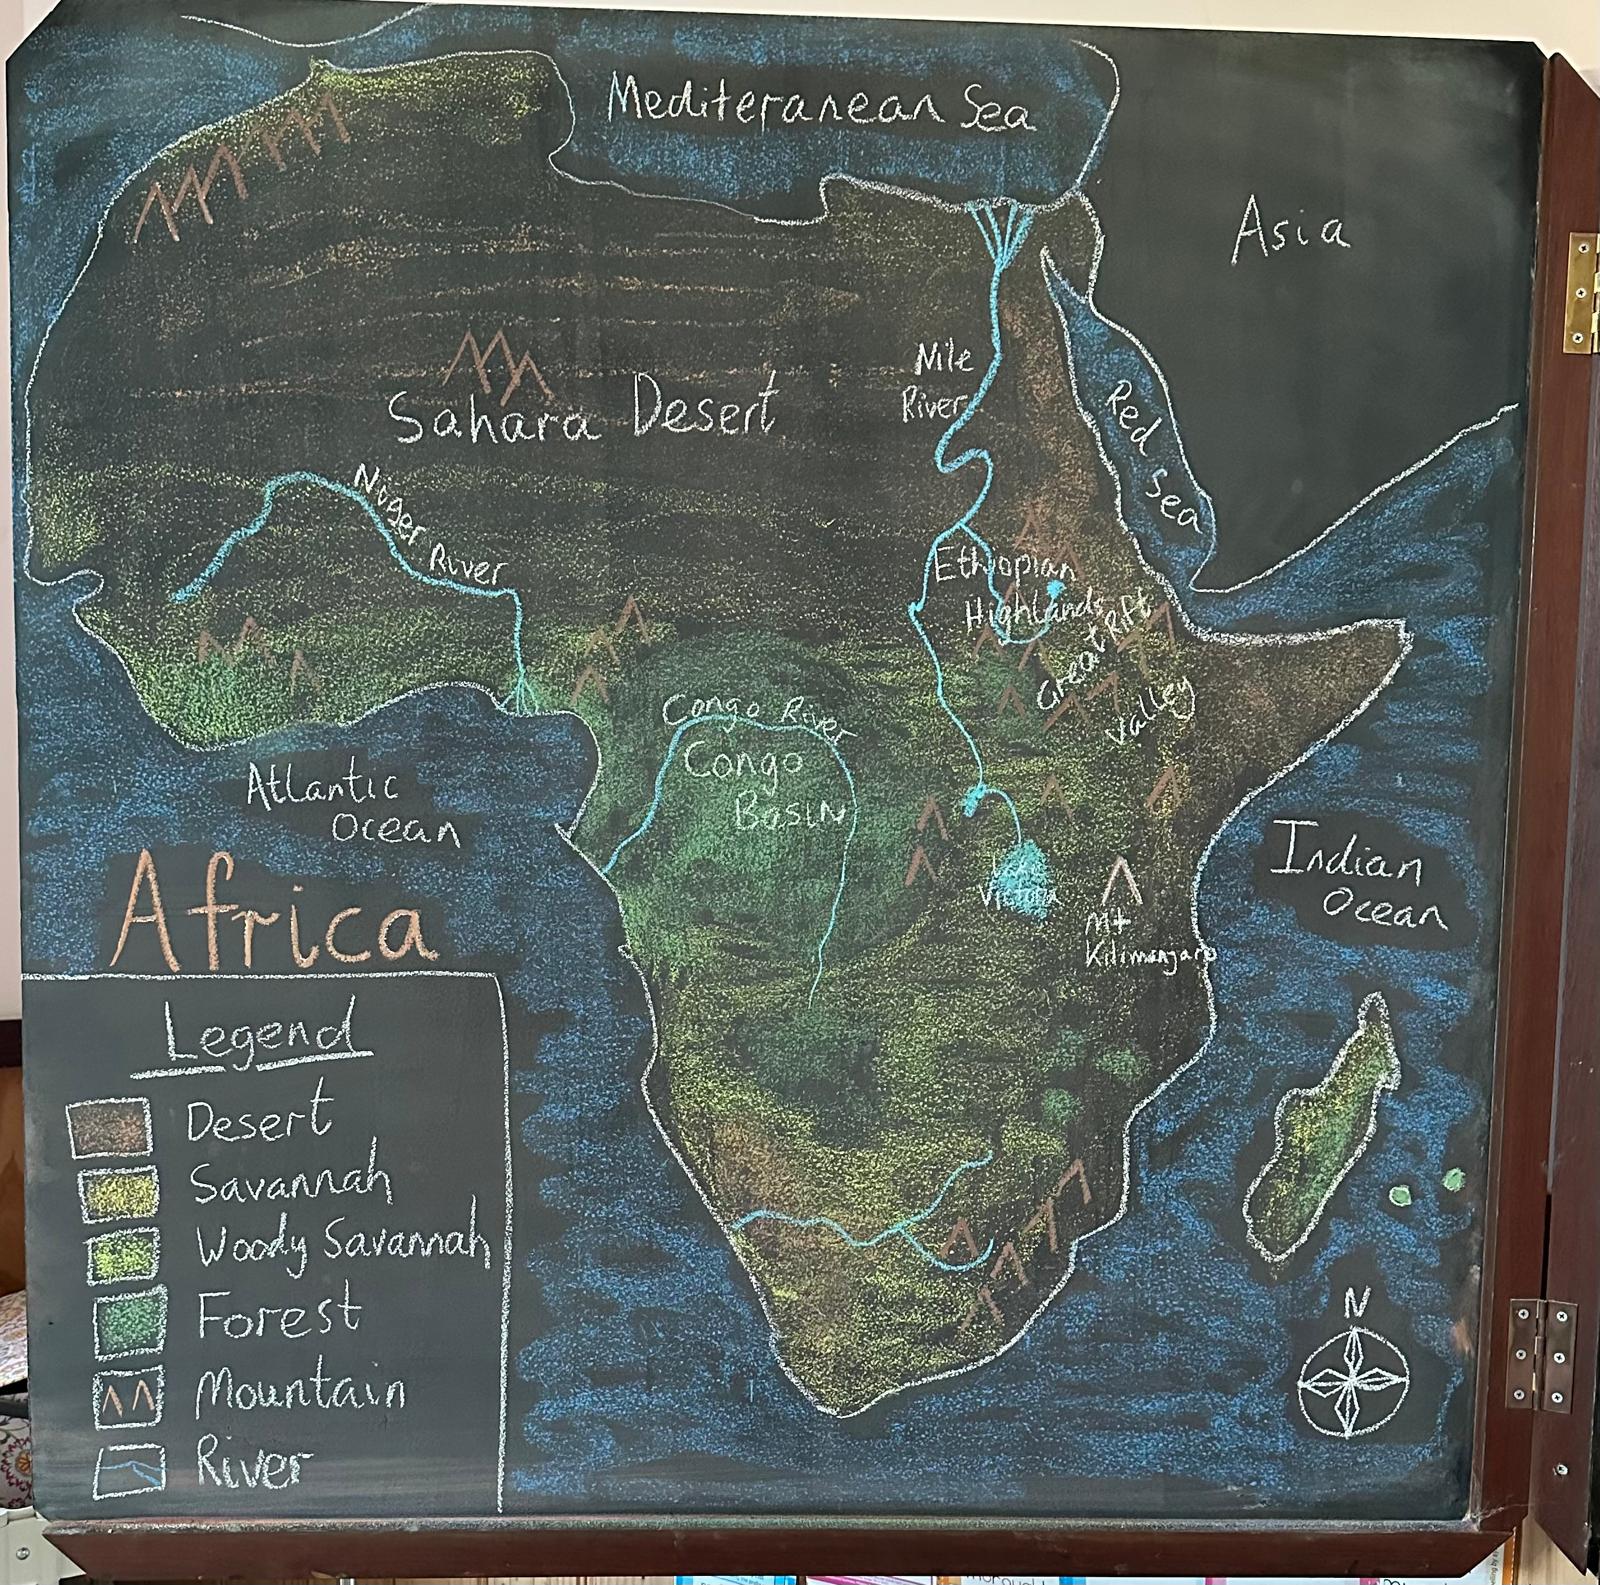 Mediteranean Sea
Asia
Nile
River
Sahara Desert
Red Sea
Niger River
Ethiopian
Highlands
Great Rift
Valley
Congo River
Congo
Basin
Atlantic
Ocean
Indian
Ocean
Victoria
Mt
Kilimanjaro
Africa
Legend
Desert
Savannah
Woody Savannah
Forest
Mountain
River
N